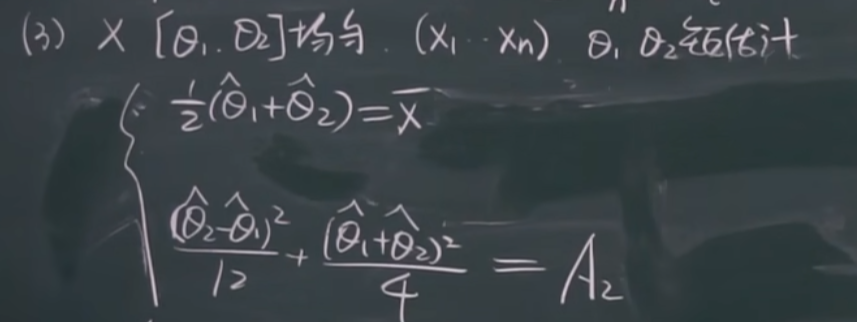 (3) X [θ₁.θ₂]均匀. (X₁…Xn) θ₁ θ₂矩估计
½(θ̂₁+θ̂₂)=X̄
(θ̂₂-θ̂₁)²/12 + (θ̂₁+θ̂₂)²/4 = A₂